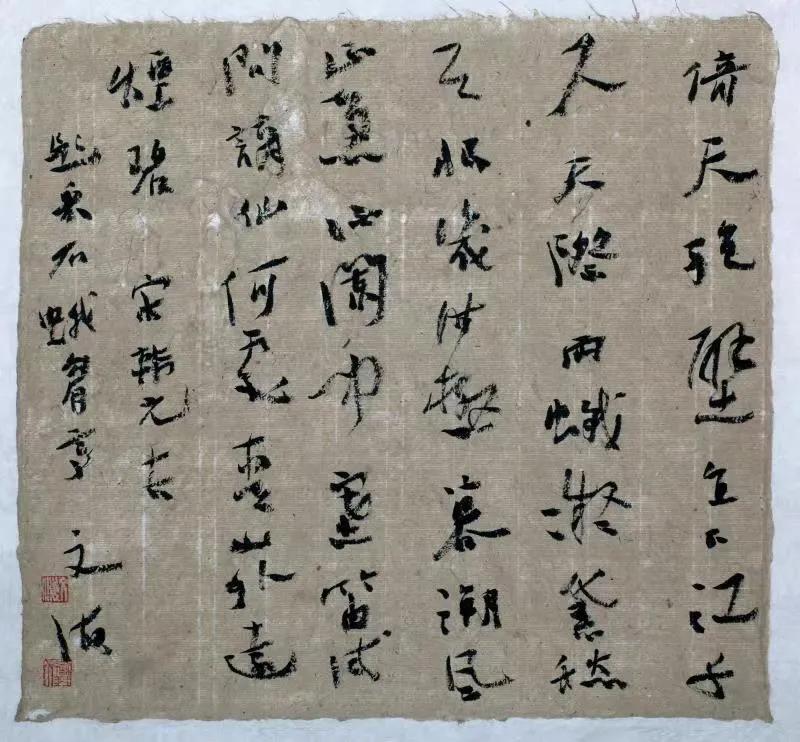 倚天絶壁直下江千
尺天際兩蛾凝黛愁
与恨幾時極暮潮風
正急酒闌聞塞笛試
問謫仙何處青山外遠
煙碧 宋韩元吉
題采石蛾眉亭 文